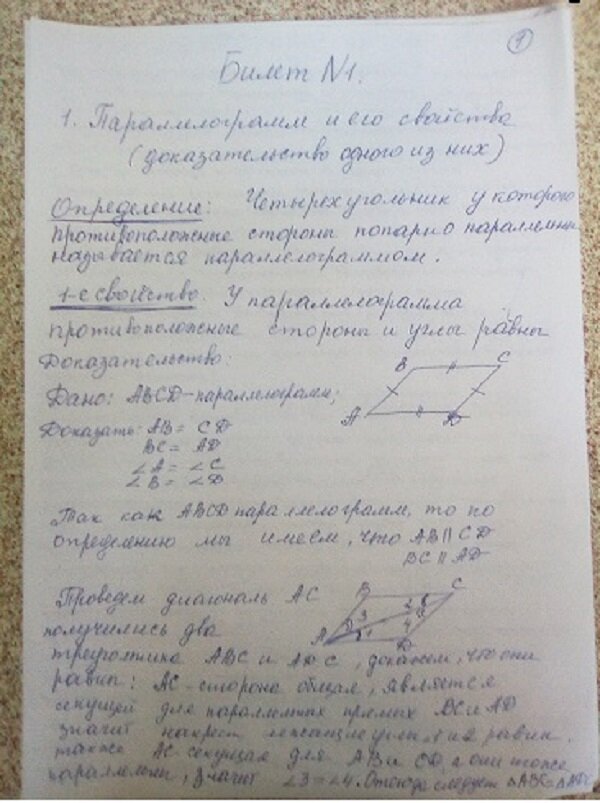 1
Билет N1.
1. Параллелограмм и его свойства
(доказательство одного из них)
Определение: Четырехугольник у которого
противоположные стороны попарно параллельны
называется параллелограммом.
1-е свойство. У параллелограмма
противоположные стороны и углы равны
Доказательство:
B C
Дано: ABCD-параллелограмм;
A D
Доказать: AB = CD
BC = AD
∠A = ∠C
∠B = ∠D
Так как ABCD параллелограмм, то по
определению мы имеем, что AB || CD
BC || AD
B C
Проведем диагональ AC
3 2 4 1
A D
получились два
треугольника ABC и ADC, докажем, что они
равны: AC-сторона общая, является
секущей для параллельных прямых BC и AD
значит накрест лежащие углы 1 и 2 равны.
также AC секущая для AB и CD, а они тоже
параллельны, значит ∠3 = ∠4. Отсюда следует △ABC=△ADC